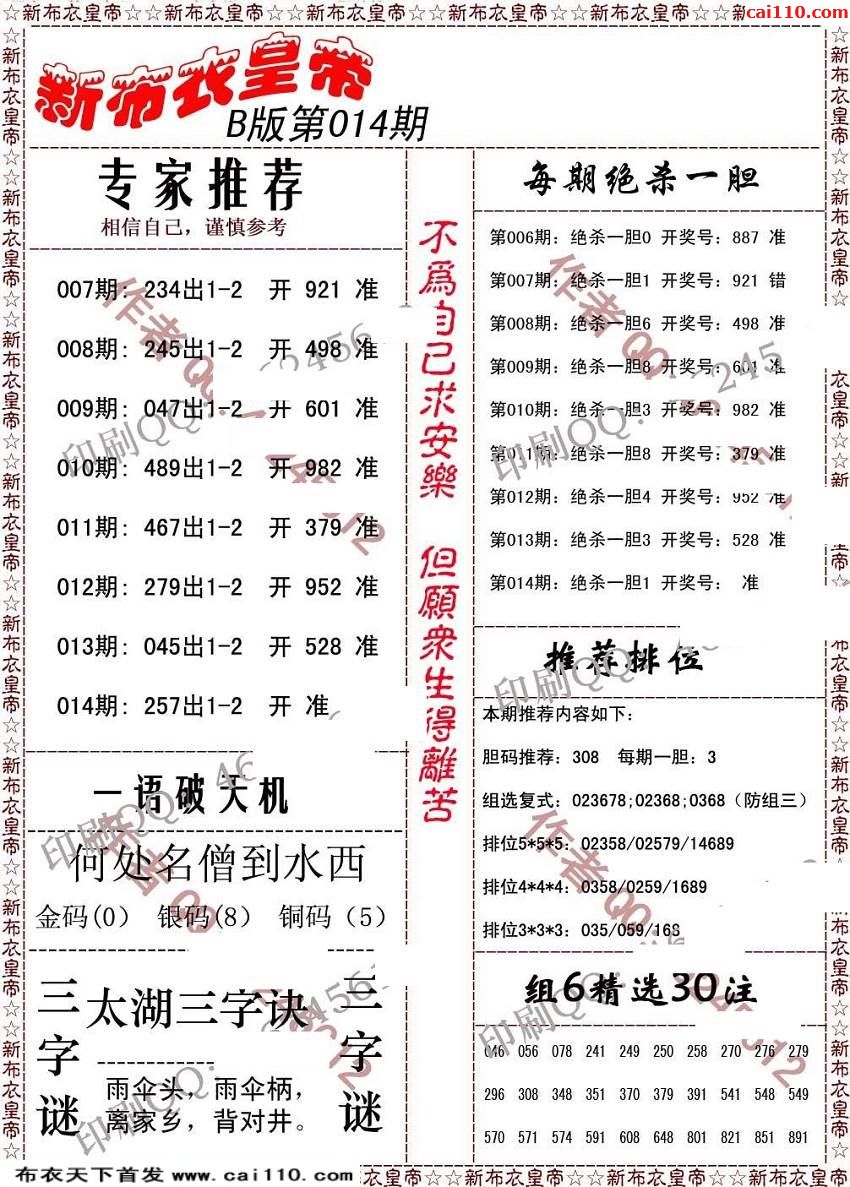 ☆新布衣皇帝☆☆新布衣皇帝☆☆新布衣皇帝☆☆新布衣皇帝☆☆新布衣皇帝☆☆新
cai110.com
新布衣皇帝
B版第014期
专家推荐
相信自己，谨慎参考
007期: 234出1-2 开 921 准
008期: 245出1-2 开 498 准
009期: 047出1-2 开 601 准
010期: 489出1-2 开 982 准
011期: 467出1-2 开 379 准
012期: 279出1-2 开 952 准
013期: 045出1-2 开 528 准
014期: 257出1-2 开 准
一语破天机
何处名僧到水西
金码(0) 银码(8) 铜码（5）
三字谜
太湖三字诀
雨伞头，雨伞柄，
离家乡，背对井。
三字谜
不為自己求安樂 但願衆生得離苦
每期绝杀一胆
第006期: 绝杀一胆0 开奖号: 887 准
第007期: 绝杀一胆1 开奖号: 921 错
第008期: 绝杀一胆6 开奖号: 498 准
第009期: 绝杀一胆8 开奖号: 601 准
第010期: 绝杀一胆3 开奖号: 982 准
第011期: 绝杀一胆8 开奖号: 379 准
第012期: 绝杀一胆4 开奖号: 952 准
第013期: 绝杀一胆3 开奖号: 528 准
第014期: 绝杀一胆1 开奖号: 准
推荐排位
本期推荐内容如下:
胆码推荐: 308 每期一胆: 3
组选复式: 023678;02368;0368（防组三）
排位5*5*5: 02358/02579/14689
排位4*4*4: 0358/0259/1689
排位3*3*3: 035/059/168
组6精选30注
046 056 078 241 249 250 258 270 276 279
296 308 348 351 370 379 391 541 548 549
570 571 574 591 608 648 801 821 851 891
布衣天下首发 www.cai110.com
衣皇帝☆☆新布衣皇帝☆☆新布衣皇帝☆☆新布衣皇帝☆